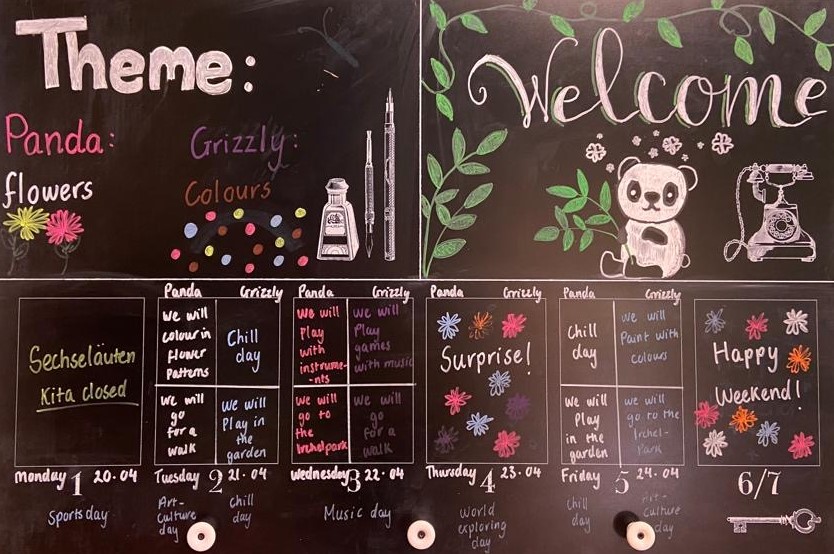 Theme:
Panda:
Grizzly:
flowers
Colours
Welcome
Panda
Grizzly
Panda
Grizzly
Panda
Grizzly
Panda
Grizzly
Sechseläuten
Kita closed
We will
colour in
flower
patterns
Chill
day
We will
go
for a
walk
We will
Play in
the
garden
We will
Play
with
instrume-
-nts
We will
Play
games
with music
We will
go to
the
Irchelpark
We will
go
for a
walk
Surprise!
Chill
day
We will
Paint with
colours
We will
Play
in the
garden
We will
go to the
Irchel-
Park
Happy
Weekend!
Monday 1 20.04
Tuesday 2 21.04
Wednesday 3 22.04
Thursday 4 23.04
Friday 5 24.04
6/7
Sports day
Art-
Culture
day
Chill
day
Music day
World
exploring
day
Chill
day
Art-
Culture
day